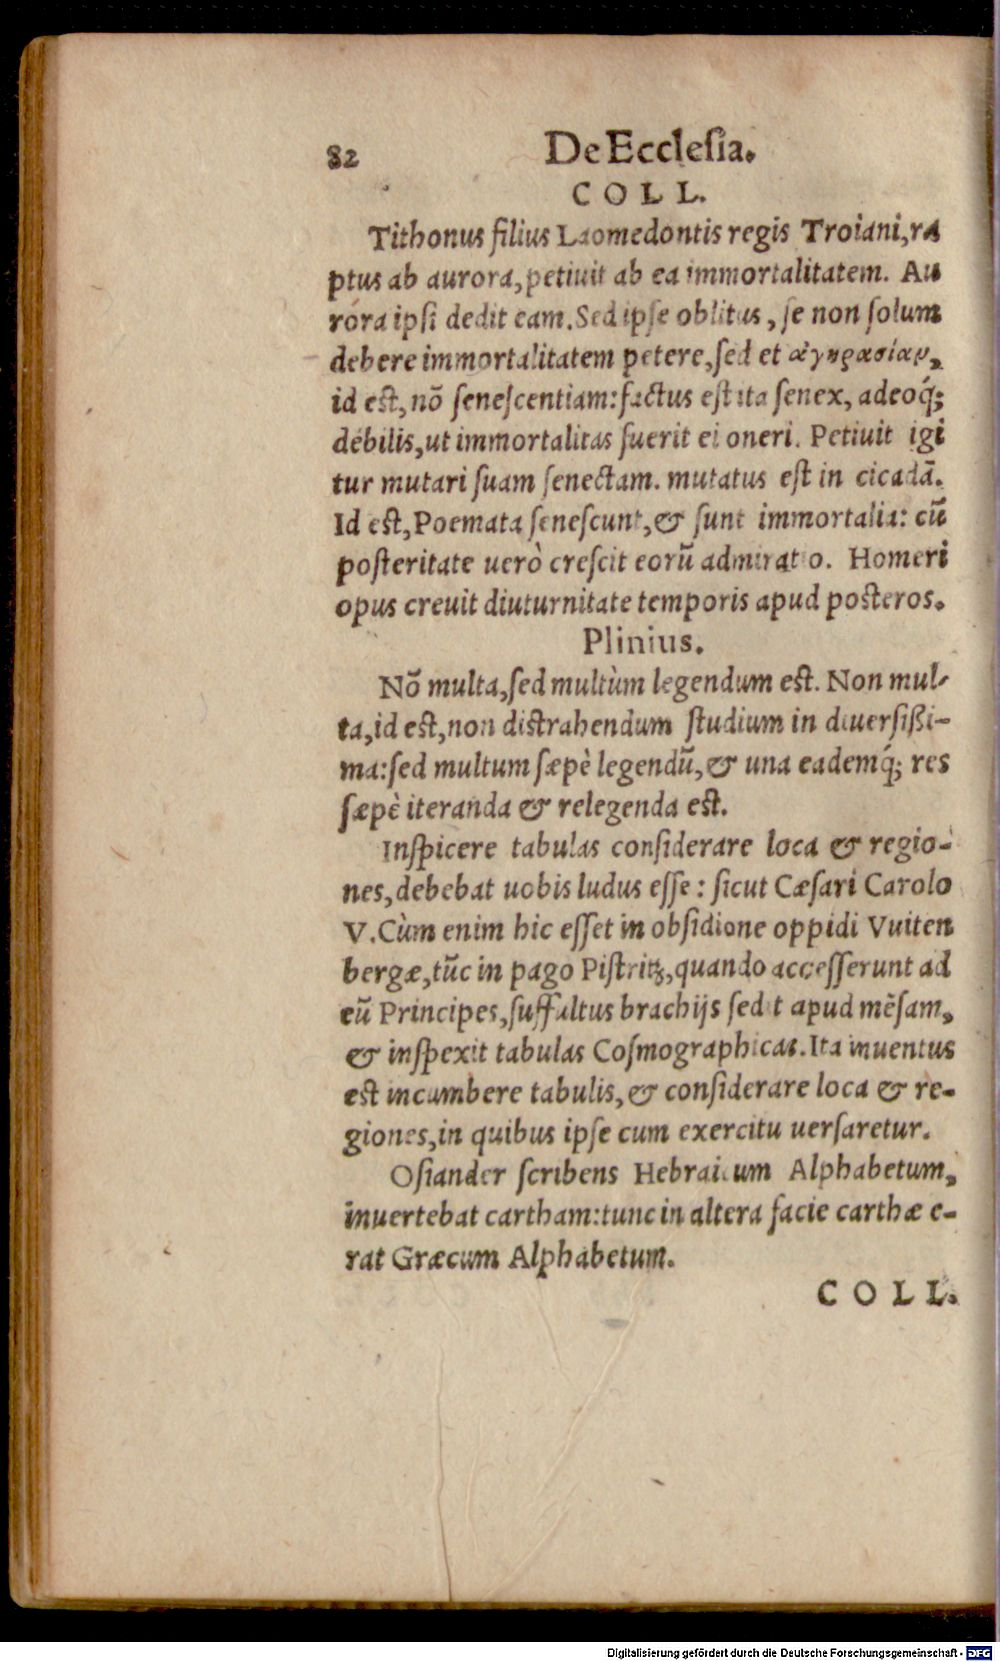 82 De Ecclesia.
C O L L.
Tithonus filius Laomedontis regis Troiani, ra
ptus ab aurora, petiuit ab ea immortalitatem. Au
rora ipsi dedit eam. Sed ipse oblitus, se non solum
debere immortalitatem petere, sed et ἀγηρασίαν,
id est, nō senescentiam: factus est ita senex, adeoq́;
debilis, ut immortalitas fuerit ei oneri. Petiuit igi
tur mutari suam senectam. mutatus est in cicadā.
Id est, Poemata senescunt, & sunt immortalia: cū
posteritate uerò crescit eorū admiratio. Homeri
opus creuit diuturnitate temporis apud posteros.
Plinius.
Nō multa, sed multùm legendum est. Non mul-
ta, id est, non distrahendum studium in diuersißi-
ma: sed multum sæpè legendū, & una eademq́; res
sæpè iteranda & relegenda est.
Inspicere tabulas considerare loca & regio-
nes, debebat uobis ludus esse: sicut Cæsari Carolo
V. Cùm enim hic esset in obsidione oppidi Vuiten
bergæ, tūc in pago Pistritz, quando accesserunt ad
eū Principes, suffultus brachijs sedit apud mēsam,
& inspexit tabulas Cosmographicas. Ita inuentus
est incumbere tabulis, & considerare loca & re-
giones, in quibus ipse cum exercitu uersaretur.
Osiander scribens Hebraicum Alphabetum,
inuertebat cartham: tunc in altera facie carthæ e-
rat Græcum Alphabetum.
C O L L.
Digitalisierung gefördert durch die Deutsche Forschungsgemeinschaft - DFG